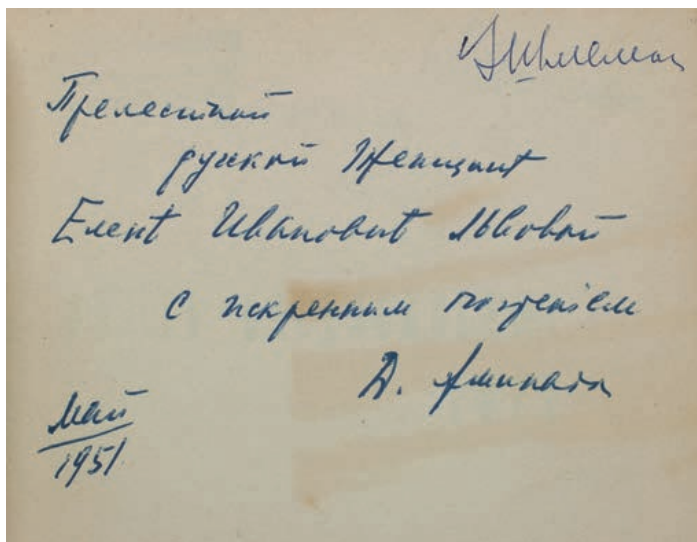 АШмеман
Прелестной
русской Женщинѣ
Еленѣ Ивановнѣ Львовой
с искренним почтенiем
Д. Аминадо
Май
1951